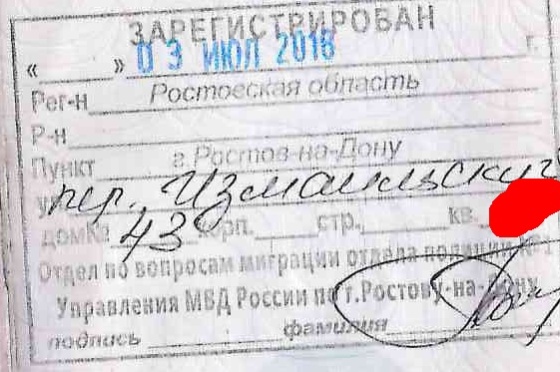 ЗАРЕГИСТРИРОВАН
«____» 03 ИЮЛ 2018 г.
Рег-н Ростовская область
Р-н
Пункт г.Ростов-на-Дону
ул. пер. Измаильский
дом№ 43 корп.____ стр.____ кв.
Отдел по вопросам миграции отдела полиции №1
Управления МВД России по г.Ростову-на-Дону
подпись ____ фамилия